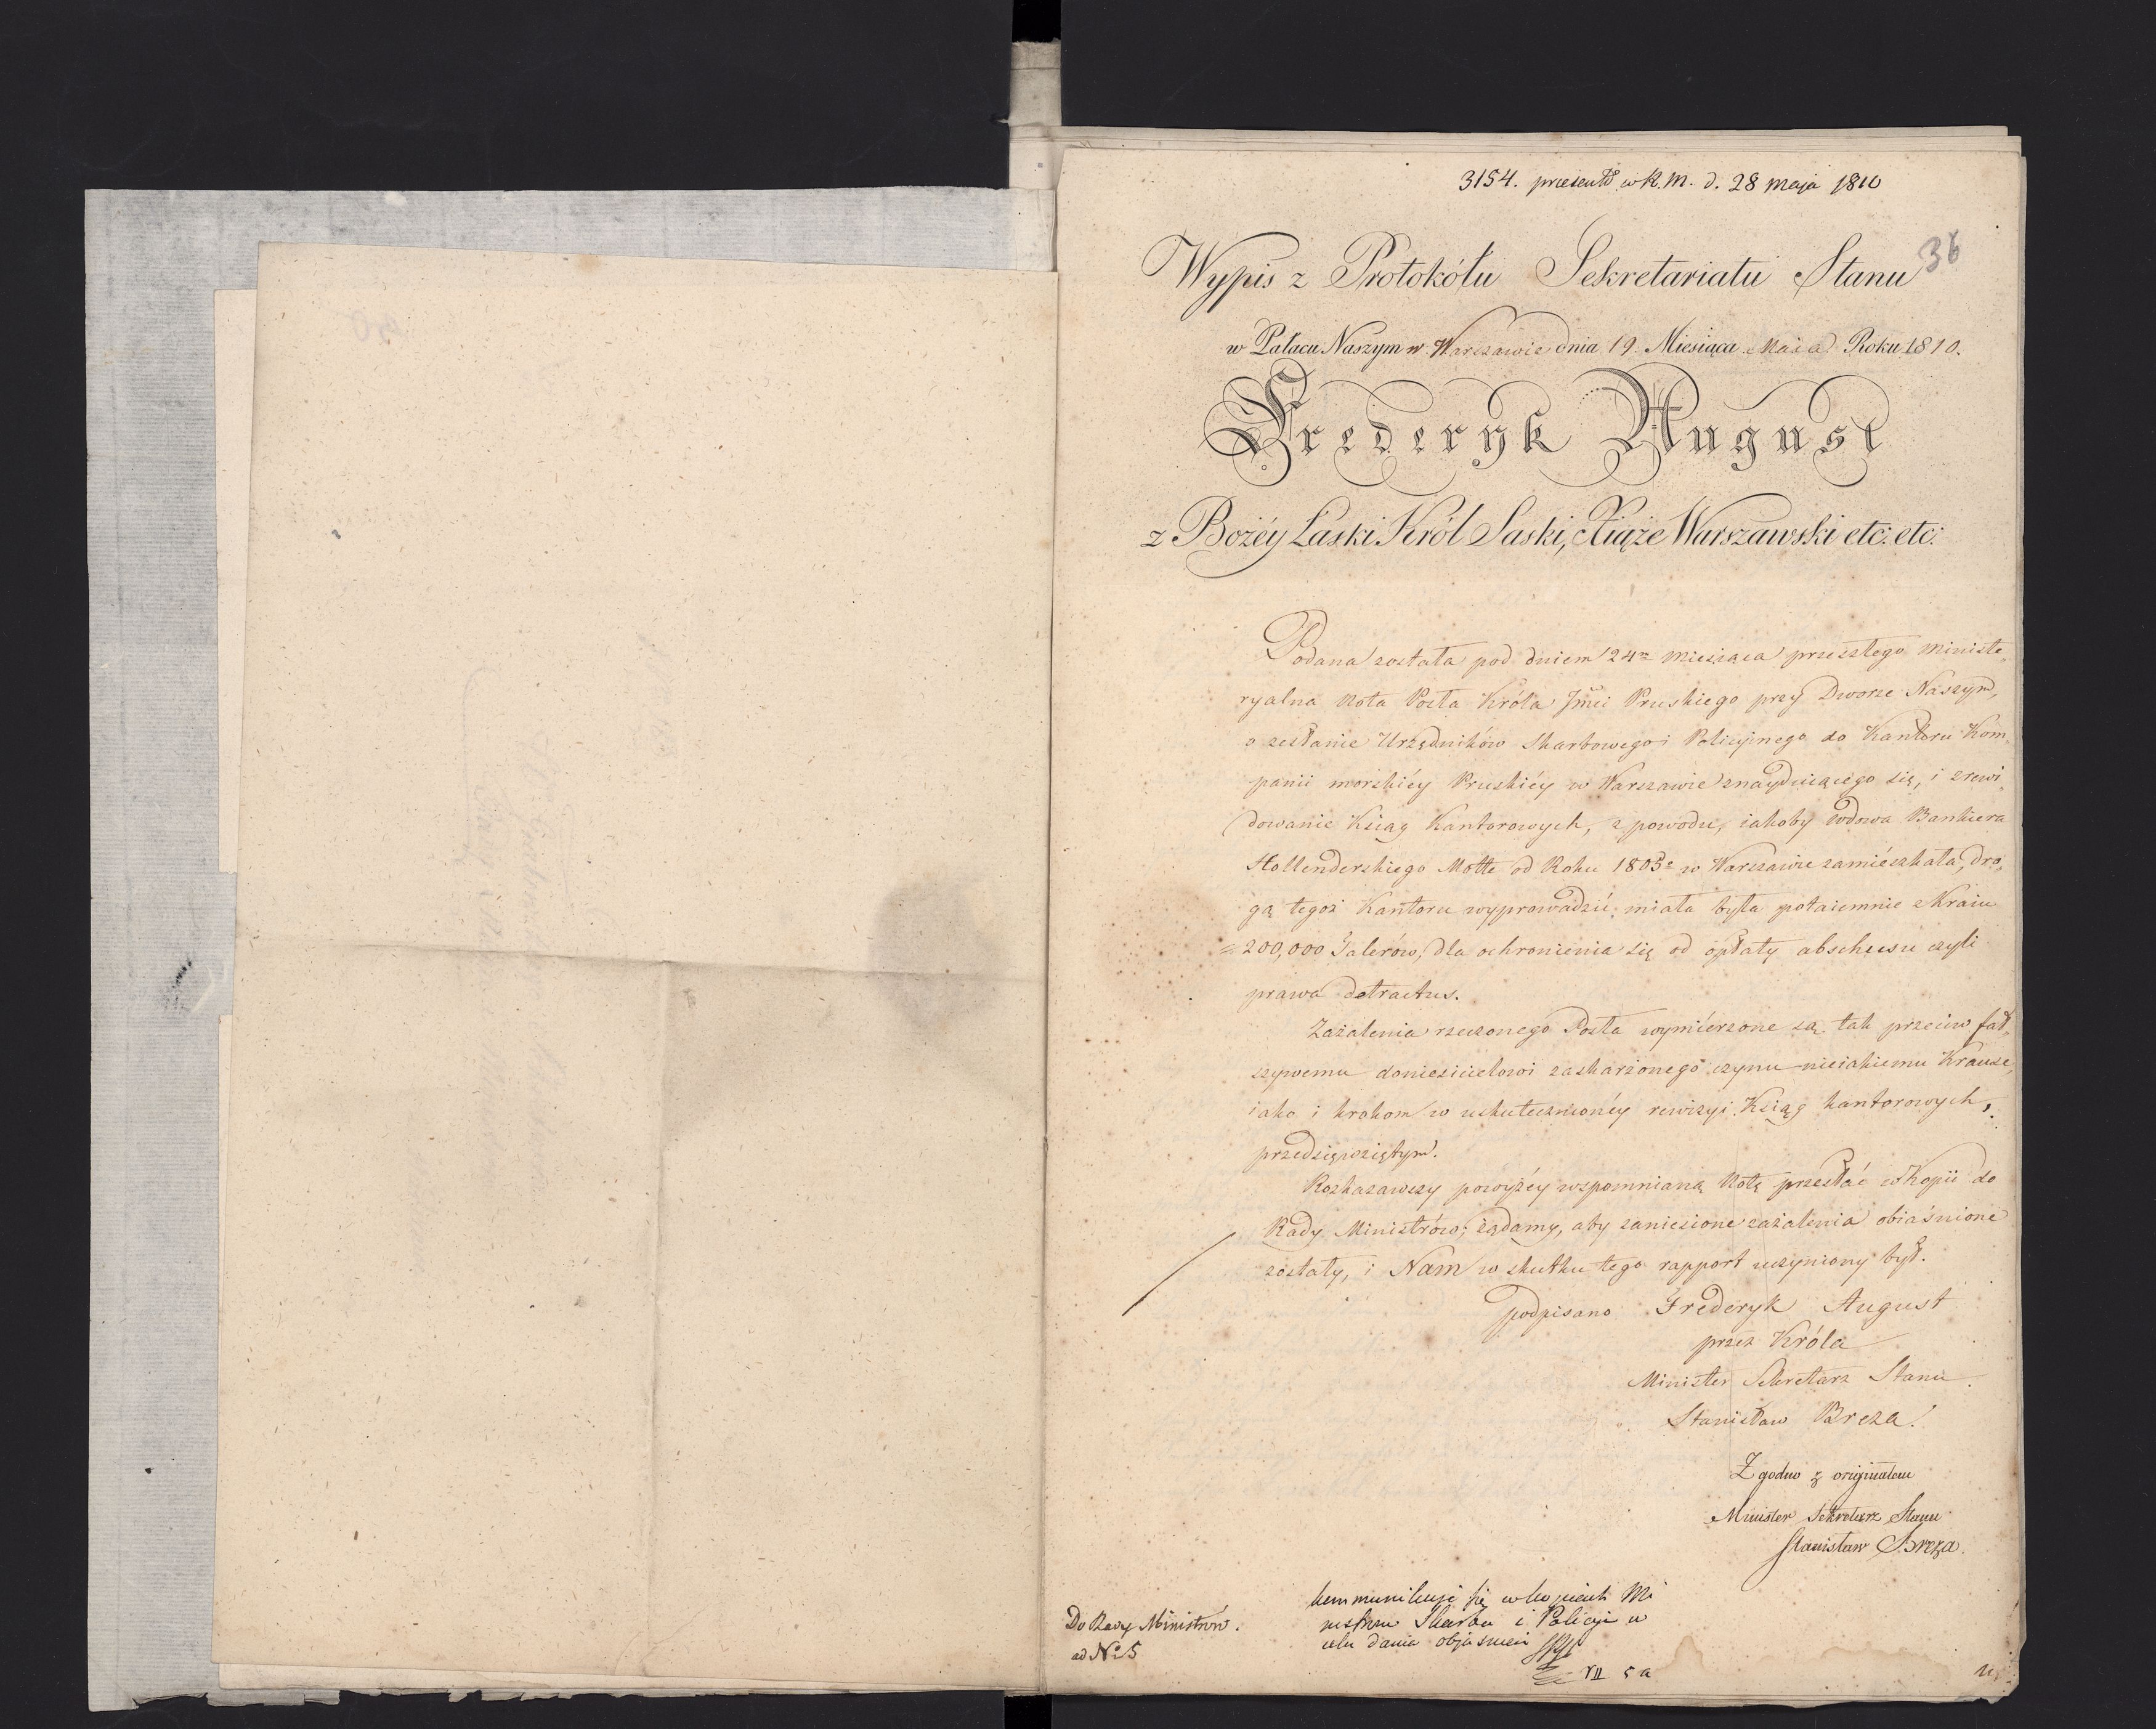 3154. praesent. w R. M. d. 28 maja 1810
36
Wypis z Protokółu Sekretariatu Stanu
w Pałacu Naszym w Warszawie dnia 19. Miesiąca Maia Roku 1810.
Frederyk August
z Bożéy Łaski Król Saski, Xiąże Warszawski etc: etc:
Podana została pod dniem 24m miesiąca przeszłego ministe,
ryalna Nota Posła Króla Jmci Pruskiego przy Dworze Naszym,
o zesłanie Urzędników Skarbowego i Policyjnego do Kantoru Kom,
panii morskiéy Pruskiéy w Warszawie znayduiącego się, i zrewi,
dowanie Ksiąg Kantorowych, z powodu, iakoby wdowa Bankiera
Hollenderskiego Motte od Roku 1805o w Warszawie zamiészkała, dro,
gą tegoż Kantoru wyprowadzić miała była potaiemnie z Kraiu
200,000 Talerów, dla ochronienia się od opłaty abschussu czyli
prawa detractus.
Zażalenia rzeczonego Posła wymiérzone są tak przeciw fał,
szywemu donosicielowi zaskarżonego czynu nieiakiemu Krause,
iako i krokom w uskutecznionéy rewizyi Ksiąg kantorowych,
przedsięwziętym.
Rozkazawszy powyżéy wspomnianą Notę przesłać w Kopii do
Rady Ministrów; żądamy, aby zaniesione zażalenia obiaśnione
zostały, i Nam w skutku tego rapport uczyniony był.
podpisano Frederyk August
przez Króla
Minister Sekretarz Stanu
Stanisław Breza.
Zgodno z originałem
Minister Sekretarz Stanu
Stanisław Breza.
Do Rady Ministrów.
ad No 5
kommunikuje się w kopiach Mi
nistrom Skarbu i Policyi w
celu dania objasnień